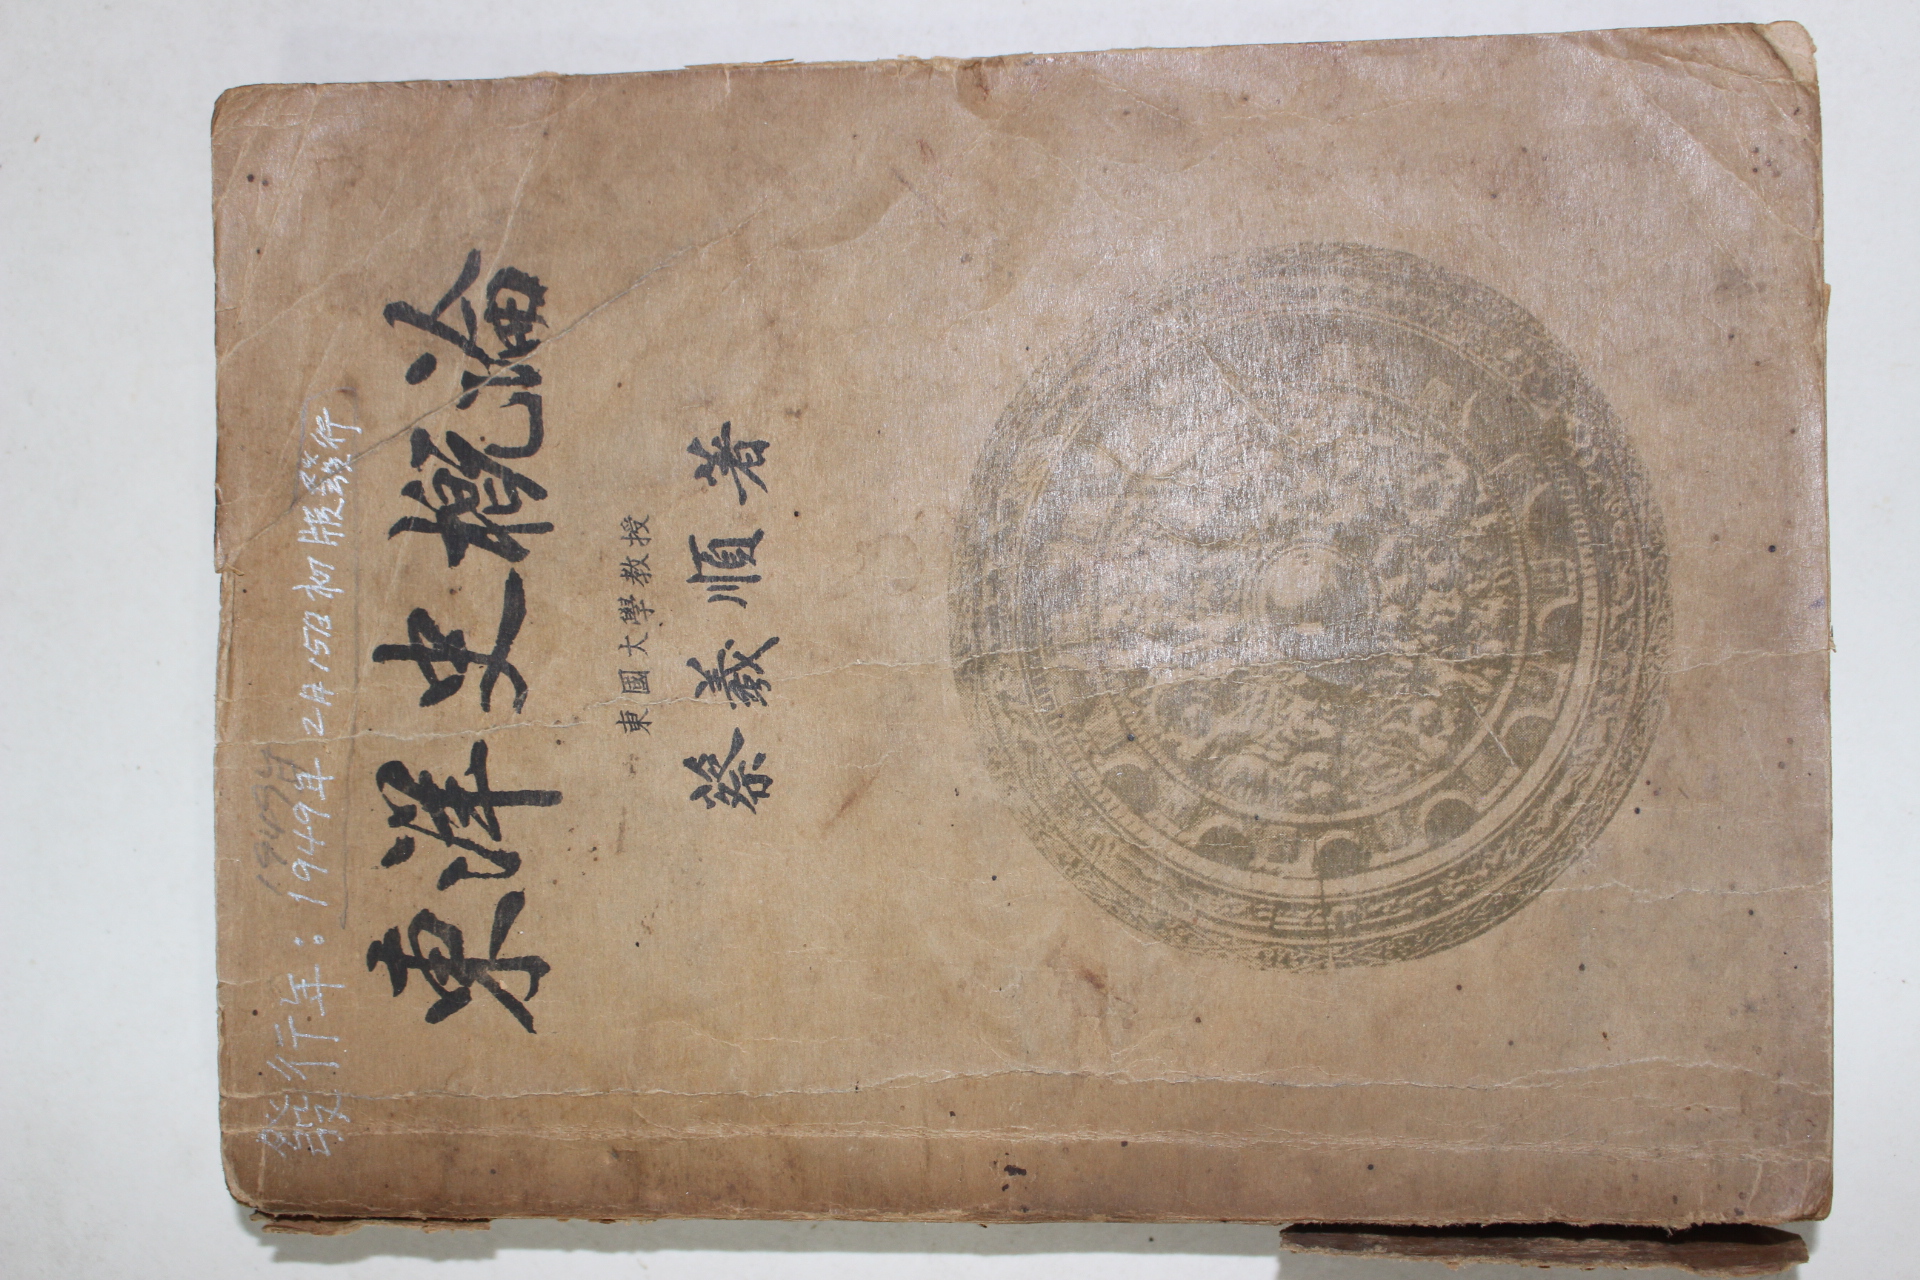 發行年:1949年2月15日初版發行
1949年
東洋史概論
東國大學教授
蔡羲順著